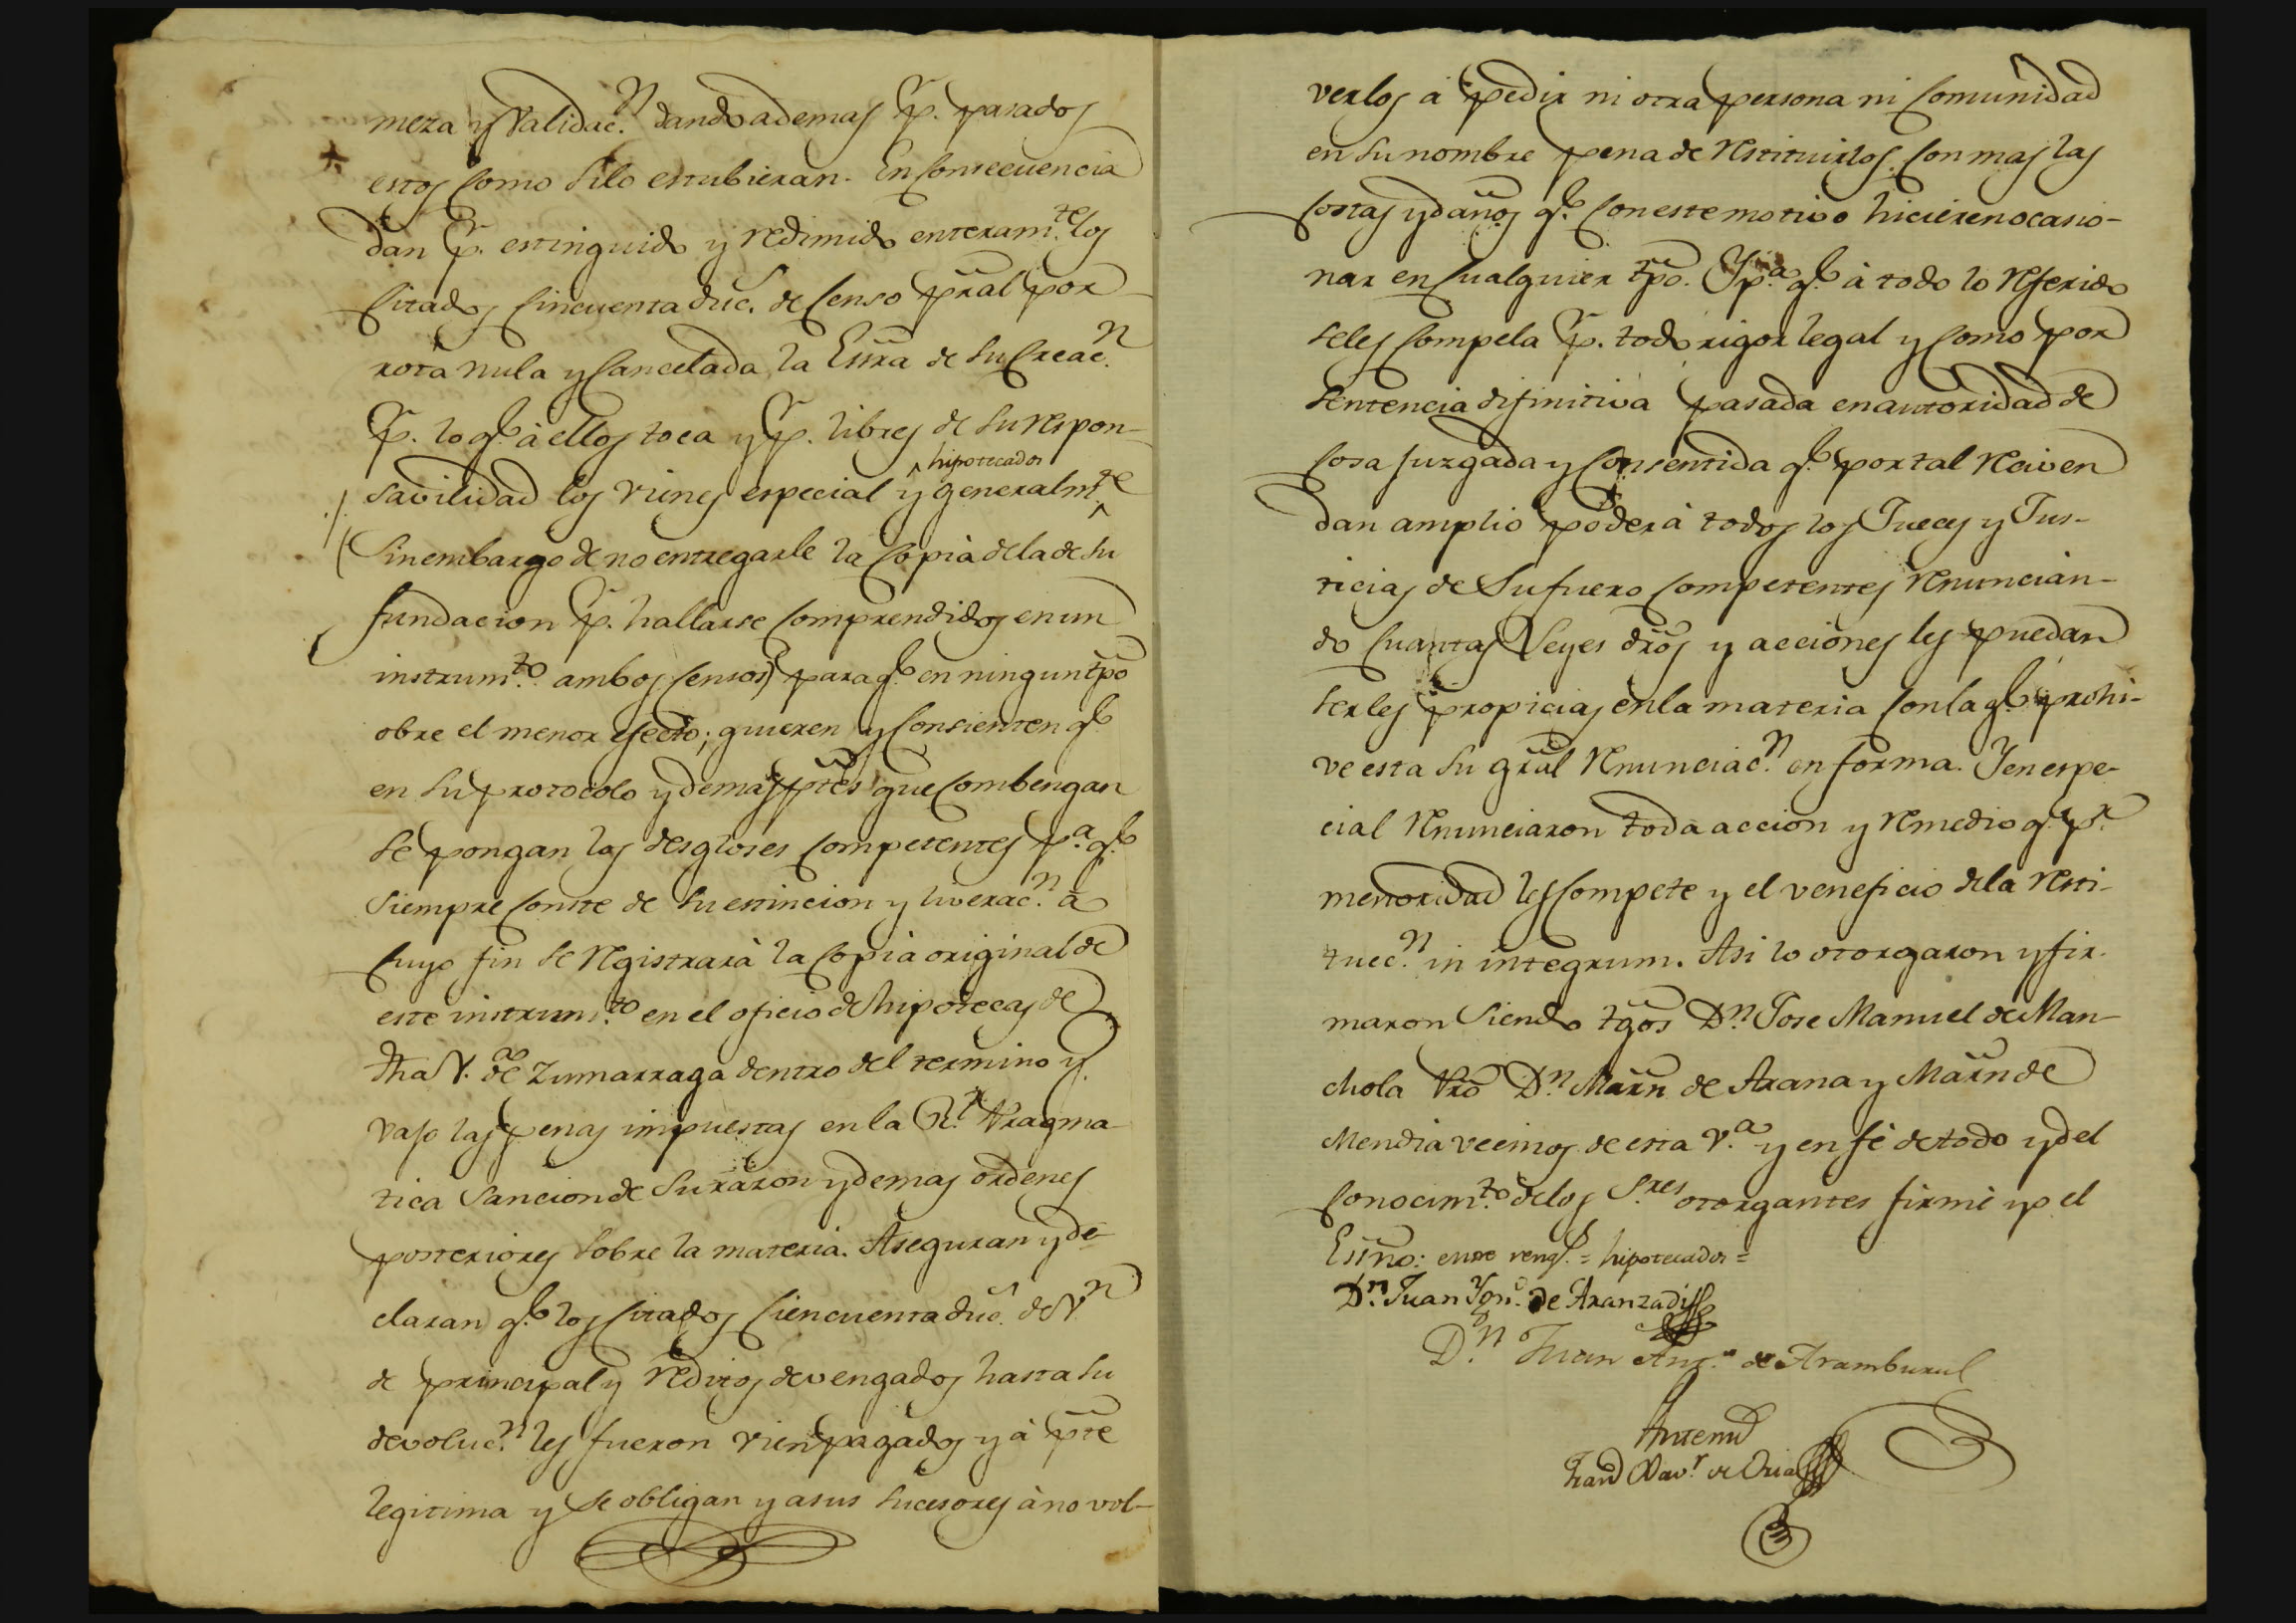 meza y Validac.n dando ademas p.r pasados
estos como silo estubieran. En consecuencia
dan p.r estinguido y redimido enteram.te los
citados cincuenta duc.s de censo pral por
rota nula y cancelada la Essra de su creac.n
p.r lo q.e à ellos toca y p.r libres de su respon-
savilidad los vienes especial y generalm.te hipotecados
(sin embargo de no entregarle la copia dela de su
fundacion p.r hallarse comprendidos en un
instrum.to ambos censos) para q.e en ningun tpo
obre el menor efecto; quieren y consienten q.e
en su protocolo y demas ptes que combengan
se pongan los desgloses competentes p.a q.e
siempre conste de su estincion y liverac.n a
cuyo fin se registrarà la copia original de
este instrum.to en el oficio de hipotecas de
dha V.a de Zumarraga dentro del termino y
vajo las penas impuestas en la R.l Pragma-
tica sancion de su razon y demas ordenes
posteriores sobre la materia. Aseguran y de-
claran q.e los citados ciencuenta duc.s de V.n
de principal y reditos devengados hasta su
devoluc.n les fueron vien pagados y à pte
legitima y se obligan y a sus sucesores à no vol-
verlos à pedir ni otra persona ni comunidad
en su nombre pena de restituirlos con mas las
costas y daños q.e con este motivo hicieren ocasio-
nar en cualquier tpo. Y p.a q.e à todo lo referido
seles compela p.r todo rigor legal y como por
sentencia difinitiva pasada en autoridad de
cosa juzgada y consentida q.e por tal reciven
dan amplio poder à todos los Jueces y Jus-
ticias de su fuero competentes renuncian-
do cuantas Leyes dros y acciones les puedan
serles propicias en la materia con la q.e prohi-
ve esta su gral renunciac.n en forma. Y en espe-
cial renunciaron toda accion y remedio q.e p.r
menoridad les compete y el veneficio dela resti-
tucc.n in integrum. Asi lo otorgaron y fir-
maron siendo tgos D.n Jose Manuel de Man-
chola Pro D.n Marn de Arana y Marn de
Mendia vecinos de esta V.a y en fé de todo y del
conocim.to delos S.res otorgantes firmè yo el
Essno: entre rengl.s = hipotecados =
D.n Juan Ign.o de Aranzadi
D.n Juan Ant.o de Aramburu
Antemi
Fran.co Xav.r de Oria